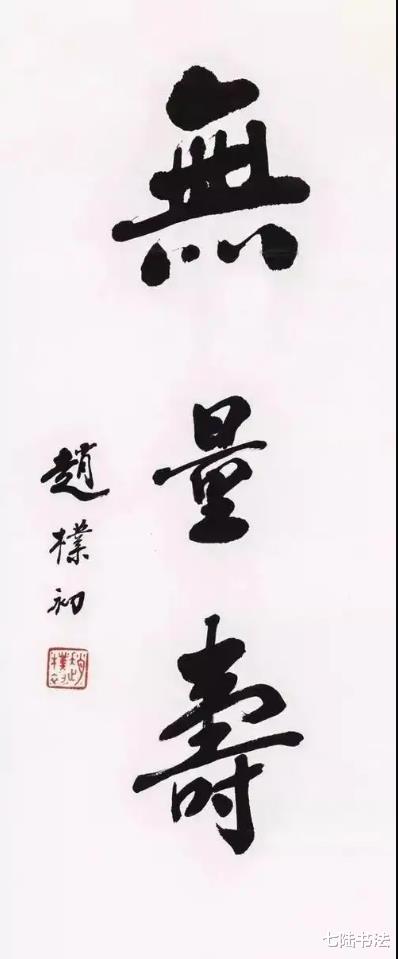 無量壽
趙樸初
趙樸初
七陆书法